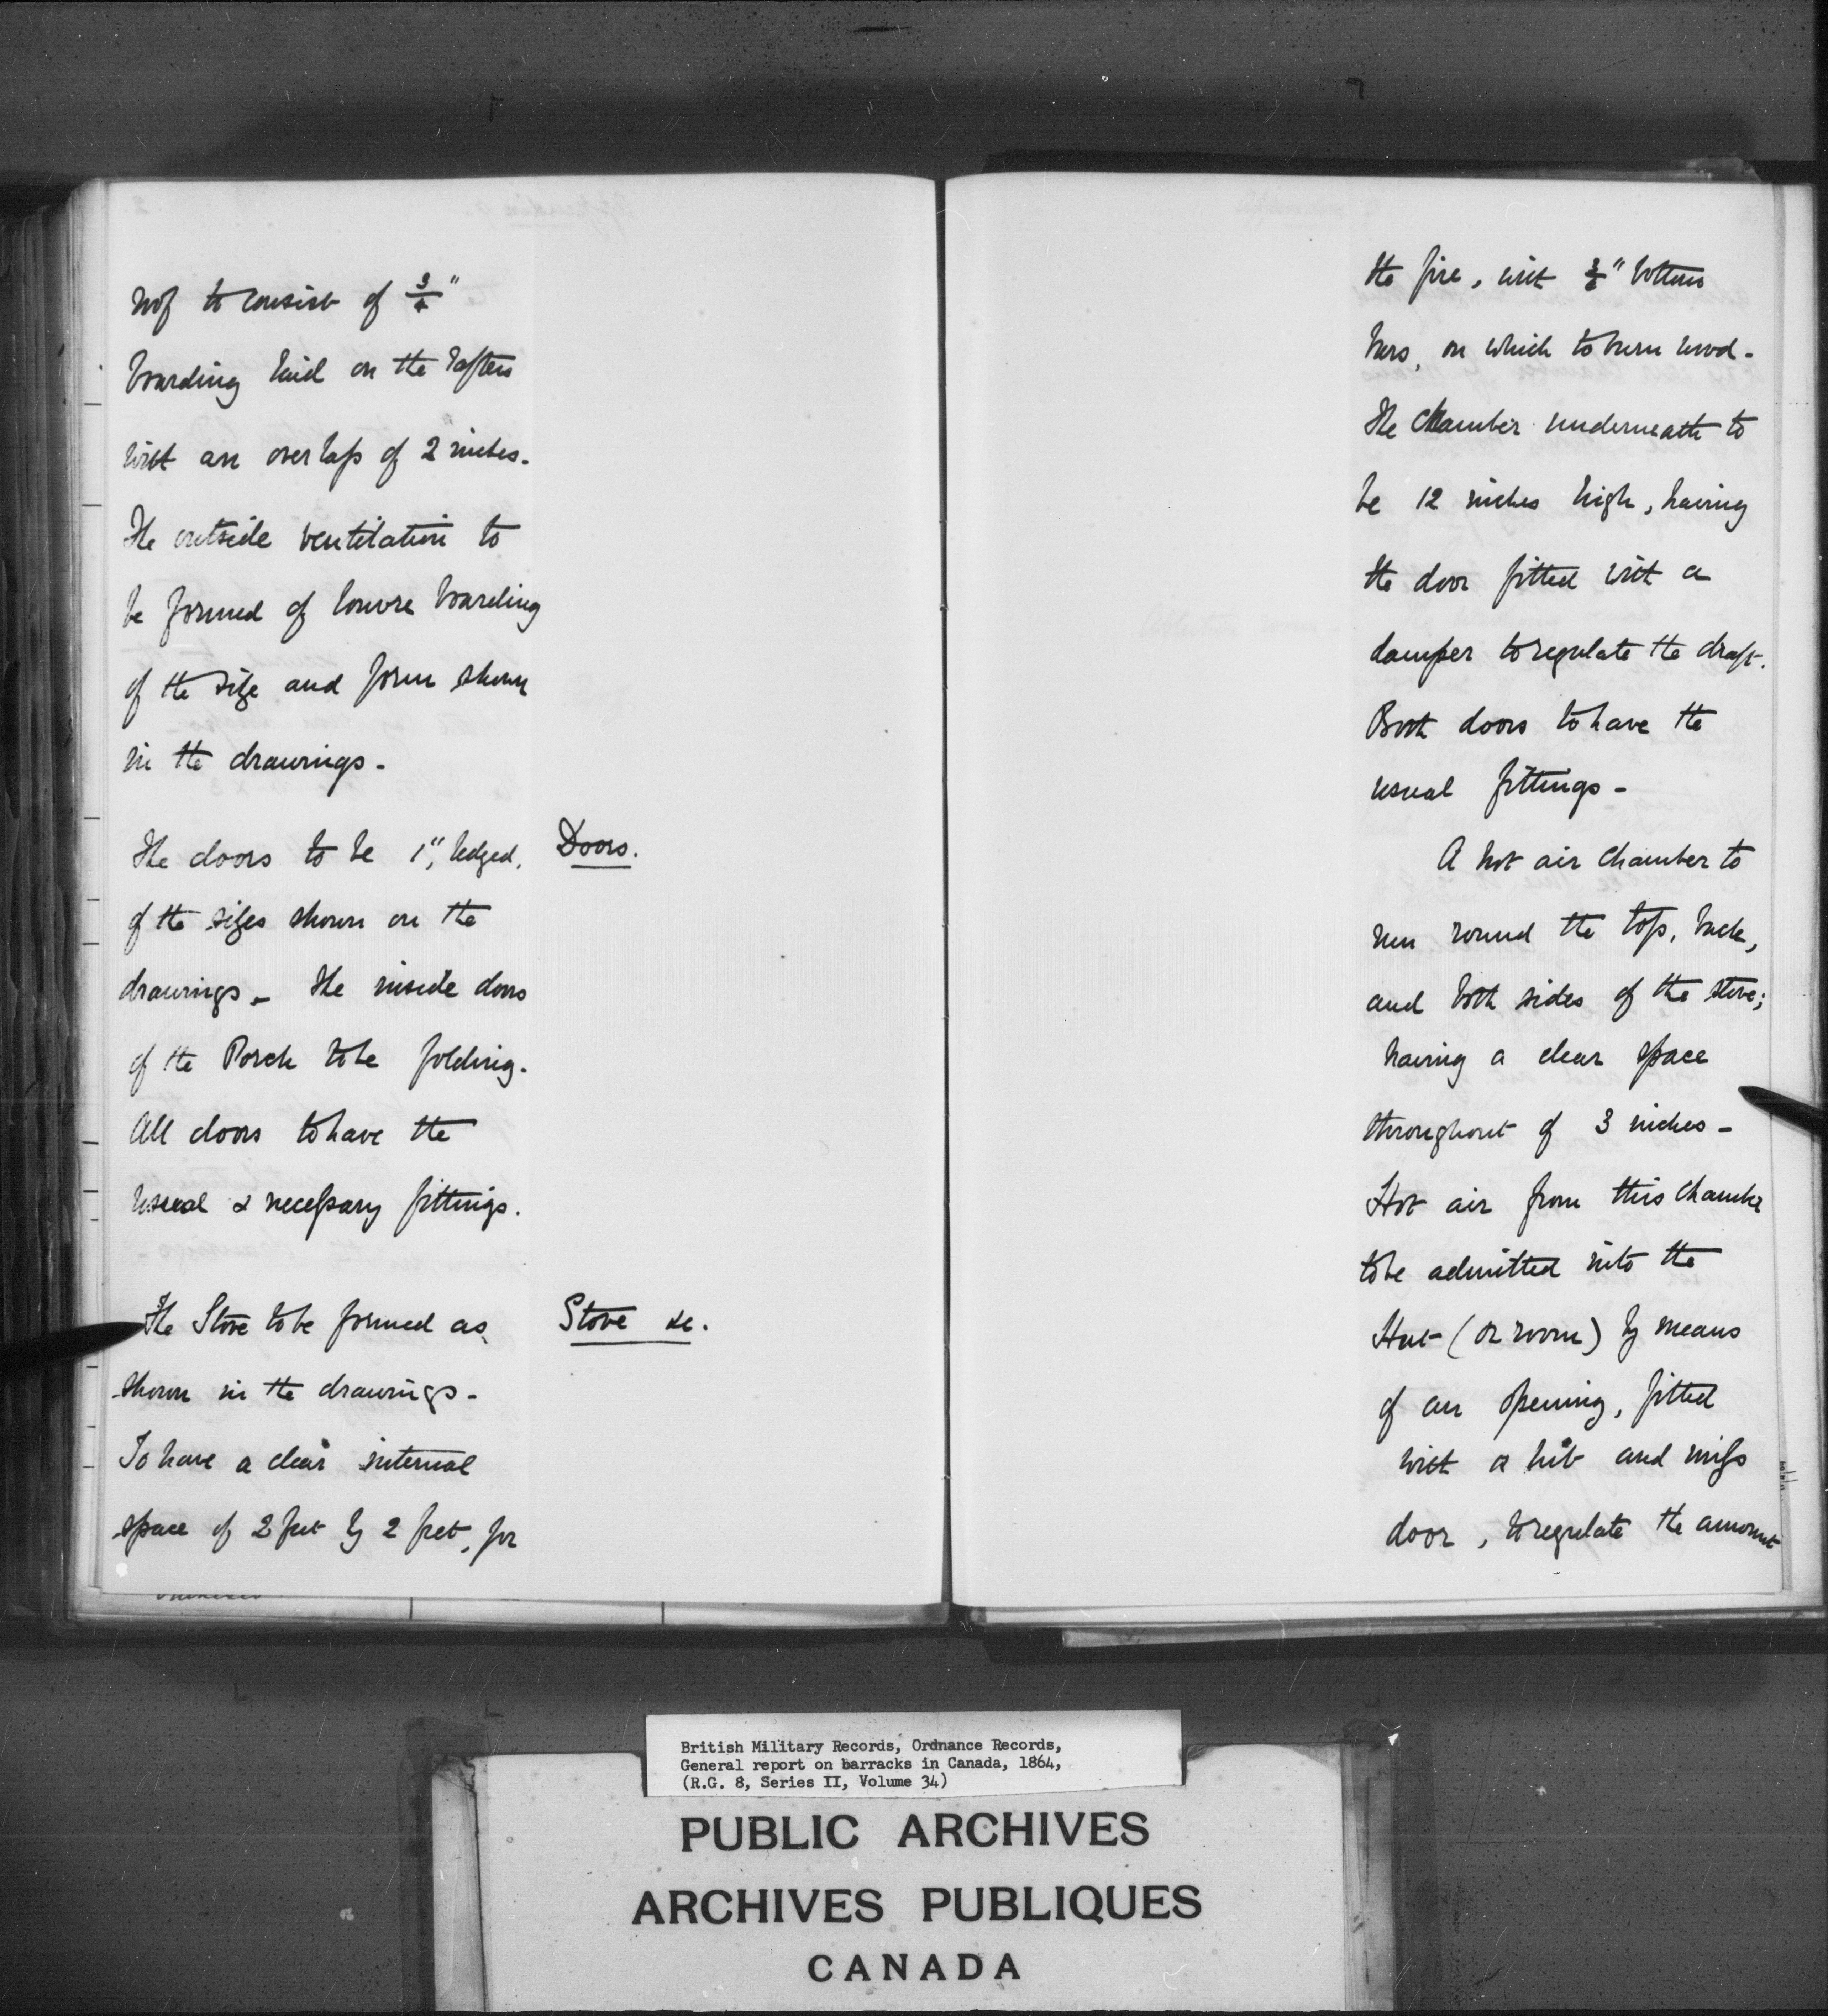 roof to consist of 3/4"
boarding laid on the rafters
with an overlap of 2" inches.
The outside ventilation to
be formed of louvre boarding
of the size and form shewn
in the drawings -
The doors to be 1", ledged,
Doors.
of the sizes shown on the
drawings - The inside doors
of the Porch to be folding.
All doors to have the
usual & necessary fittings.
The Stove to be formed as
Stove &c.
shown in the drawings -
To have a clear internal
space of 2 feet by 2 feet, for
the fire, with 3/4" bottom
bars, on which to burn wood -
The chamber underneath to
be 12 inches high, having
the door fitted with a
damper to regulate the draft.
Both doors to have the
usual fittings -
A hot air chamber to
run round the top, back,
and both sides of the stove;
having a clear space
throughout of 3 inches -
Hot air from this chamber
to be admitted into the
Hut (or room) by means
of an opening, fitted
with a hit and miss
door, to regulate the amount
British Military Records, Ordnance Records,
General report on barracks in Canada, 1864,
(R.G. 8, Series II, Volume 34)
PUBLIC ARCHIVES
ARCHIVES PUBLIQUES
CANADA